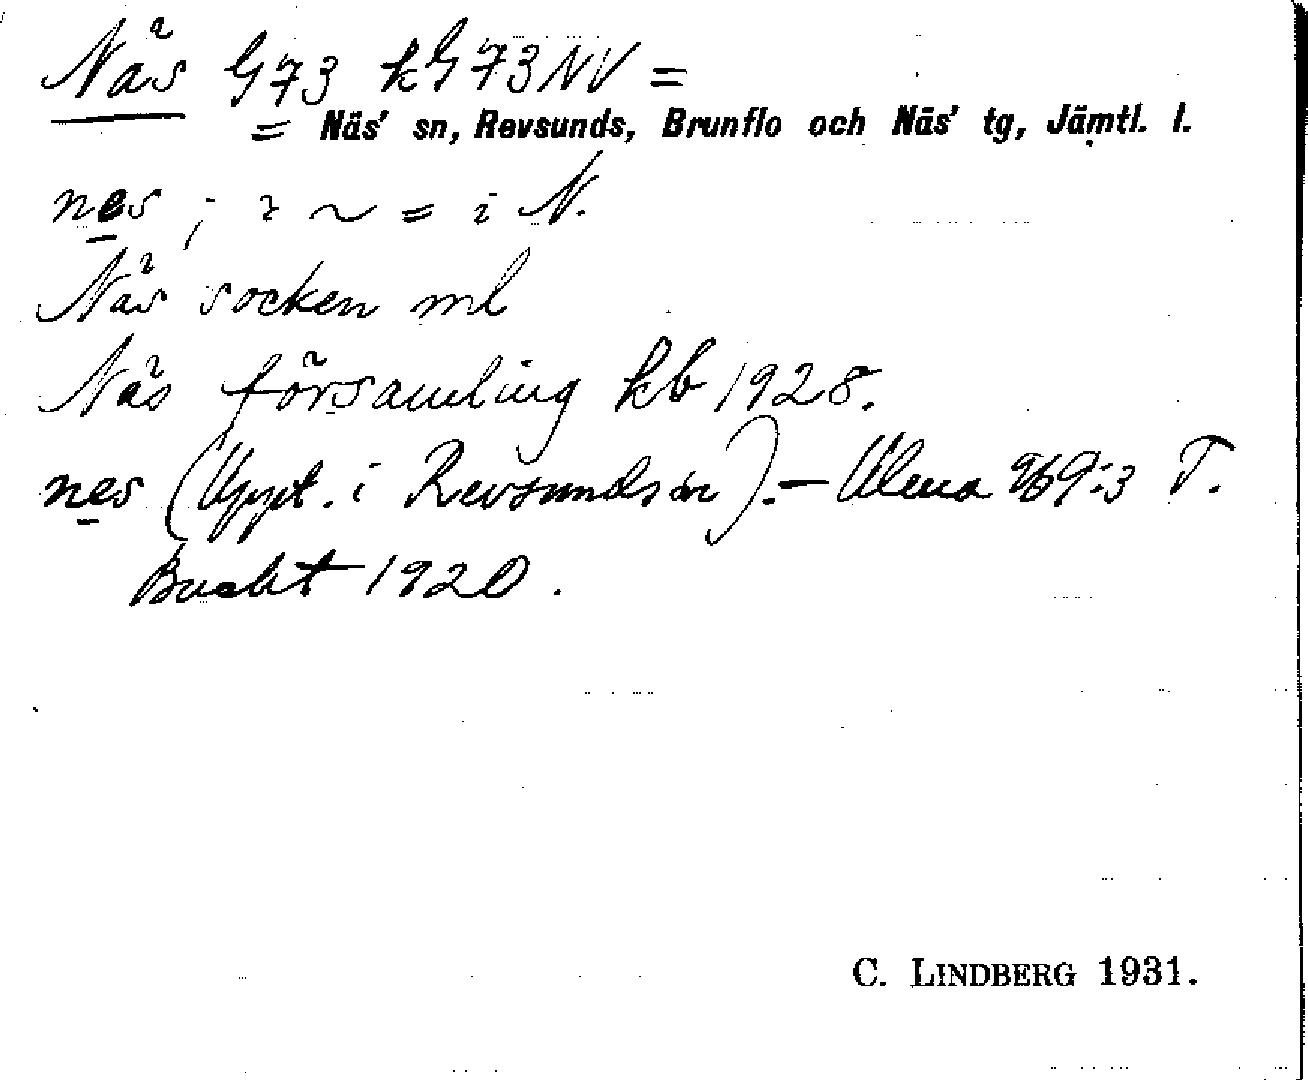 Näs G73 kG73NV =
= Näs' sn, Revsunds, Brunflo och Näs' tg, Jämtl. l.
nes ; i ~ = i N.
Näs socken ml
Näs församling kb 1928.
nes (Uppt. i Revsunds sn). – Ulma 269:3 T.
Bucht 1920.
C. LINDBERG 1931.